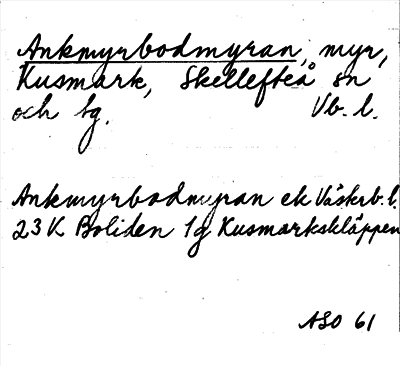 Ankmyrbodmyran, myr,
Kusmark, Skellefteå sn
och tg. Vb. l.
Ankmyrbodmyran ek Västerb. l.
23 K Boliden 1g Kusmarksklåppen
ASO 61